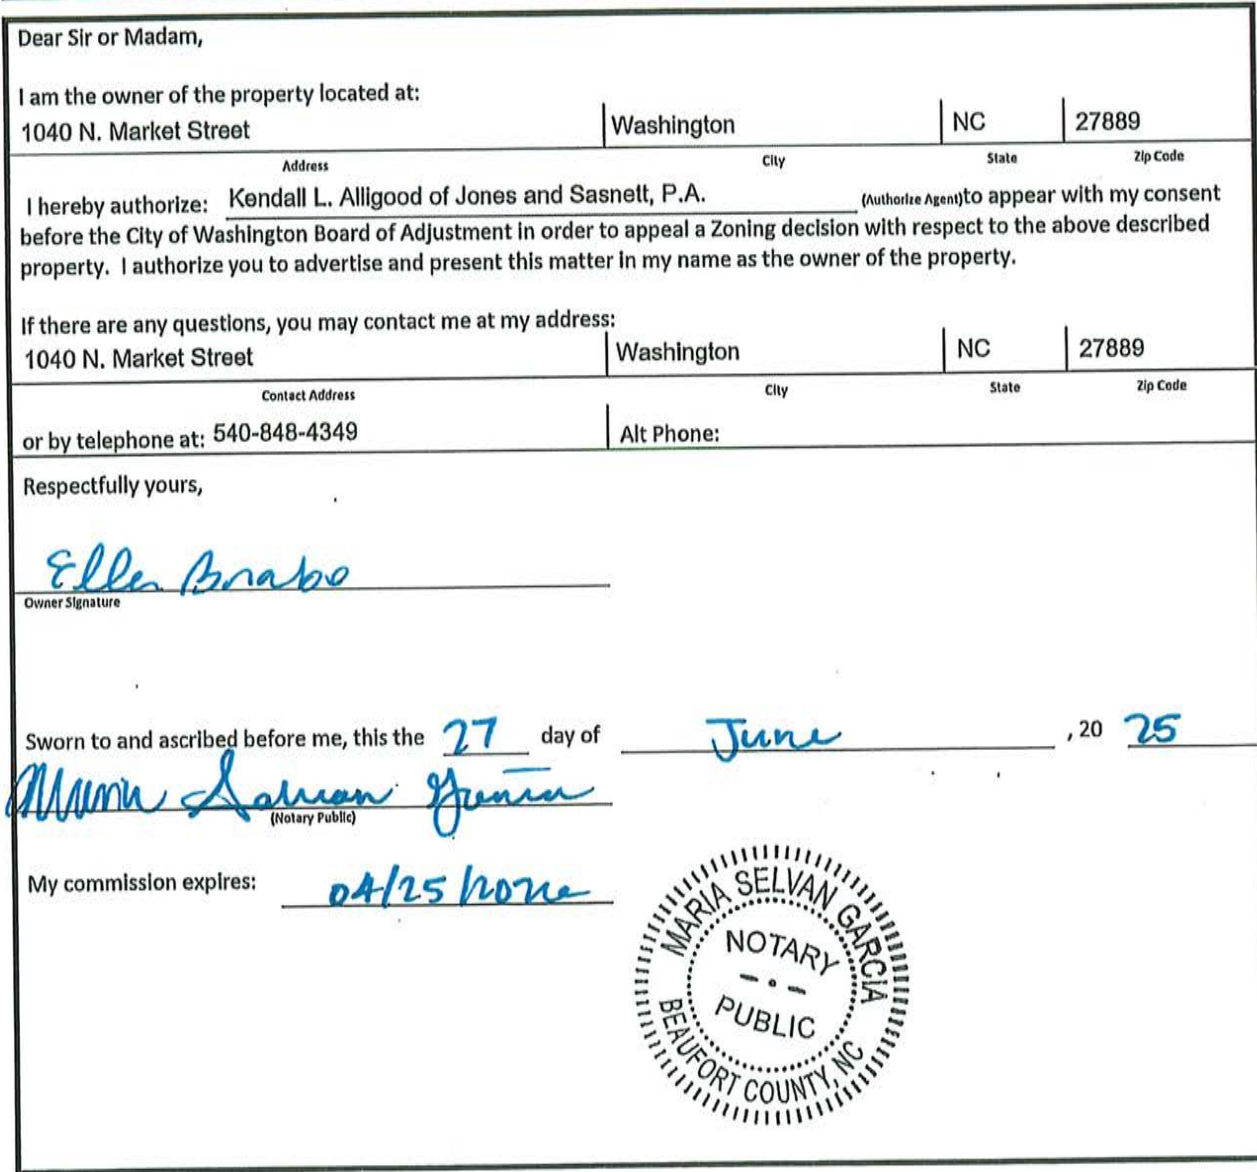 Dear Sir or Madam,
I am the owner of the property located at:
1040 N. Market Street Washington NC 27889
Address City State Zip Code
I hereby authorize: Kendall L. Alligood of Jones and Sasnett, P.A. (Authorize Agent)to appear with my consent
before the City of Washington Board of Adjustment in order to appeal a Zoning decision with respect to the above described
property. I authorize you to advertise and present this matter in my name as the owner of the property.
If there are any questions, you may contact me at my address:
1040 N. Market Street Washington NC 27889
Contact Address City State Zip Code
or by telephone at: 540-848-4349 Alt Phone:
Respectfully yours,
Ellen Brabo
Owner Signature
Sworn to and ascribed before me, this the 27 day of June , 20 25
(Notary Public)
My commission expires: 04/25
MARIA SELVAN GARCIA
NOTARY
PUBLIC
BEAUFORT COUNTY, NC